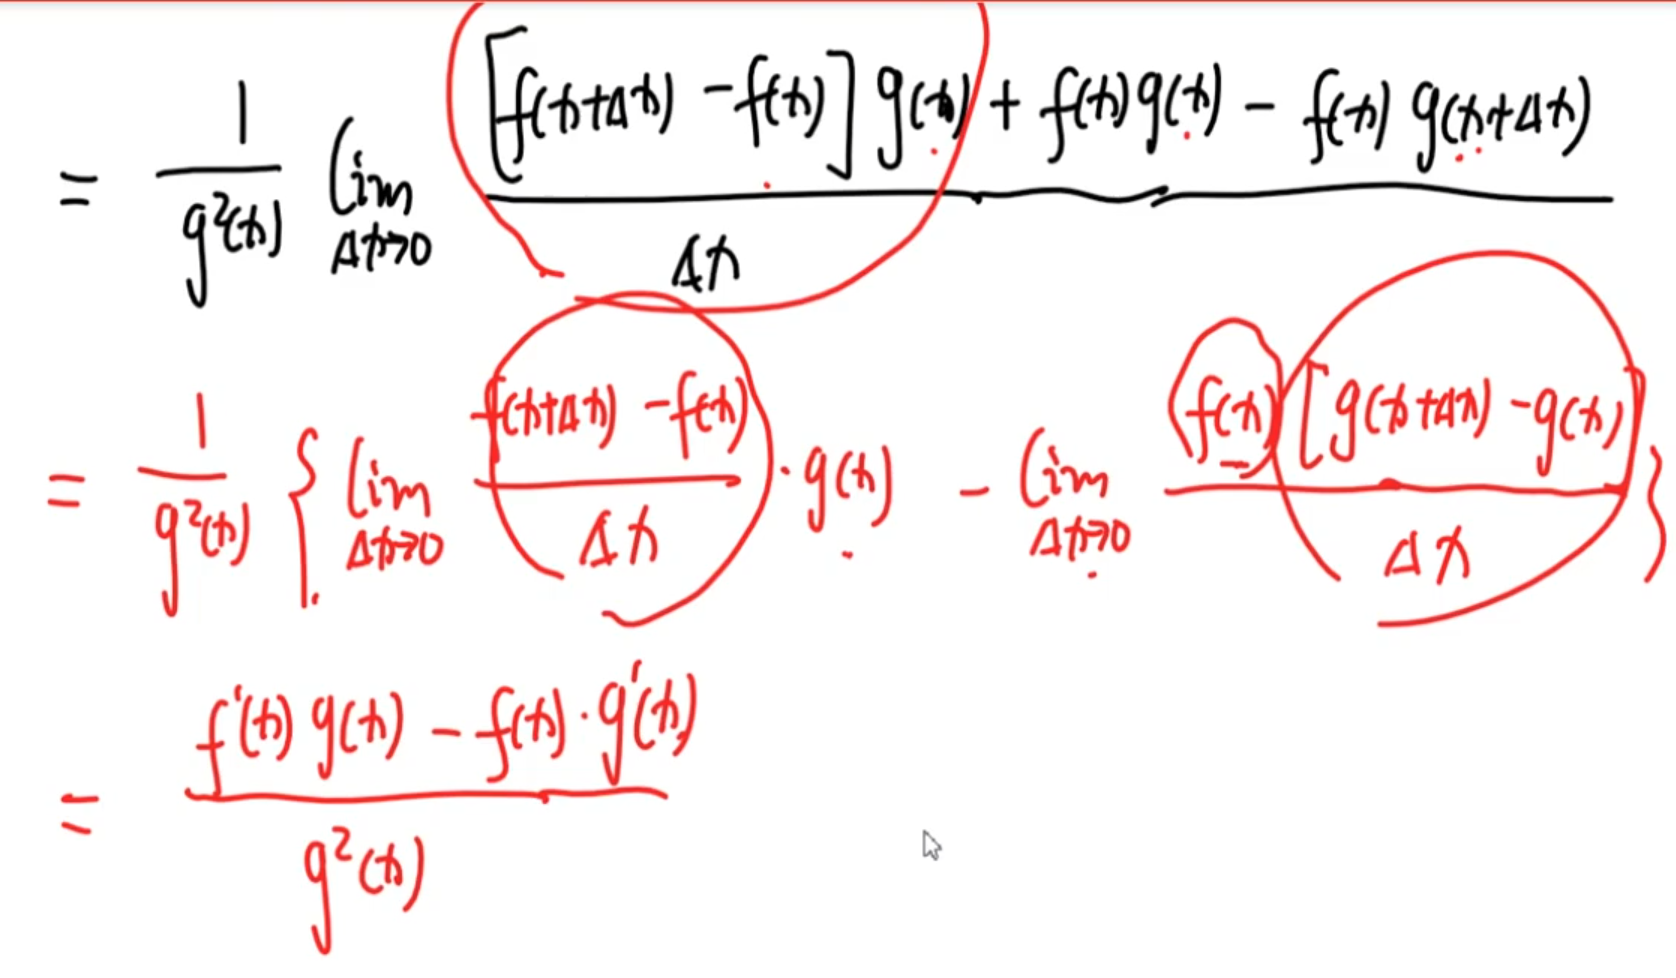 = 1/g²(x) lim Δx→0 {[f(x+Δx) - f(x)] g(x) + f(x)g(x) - f(x) g(x+Δx)}/Δx
= 1/g²(x) { lim Δx→0 (f(x+Δx) - f(x))/Δx · g(x) - lim Δx→0 f(x)[g(x+Δx) - g(x)]/Δx }
= (f'(x) g(x) - f(x) · g'(x))/g²(x)